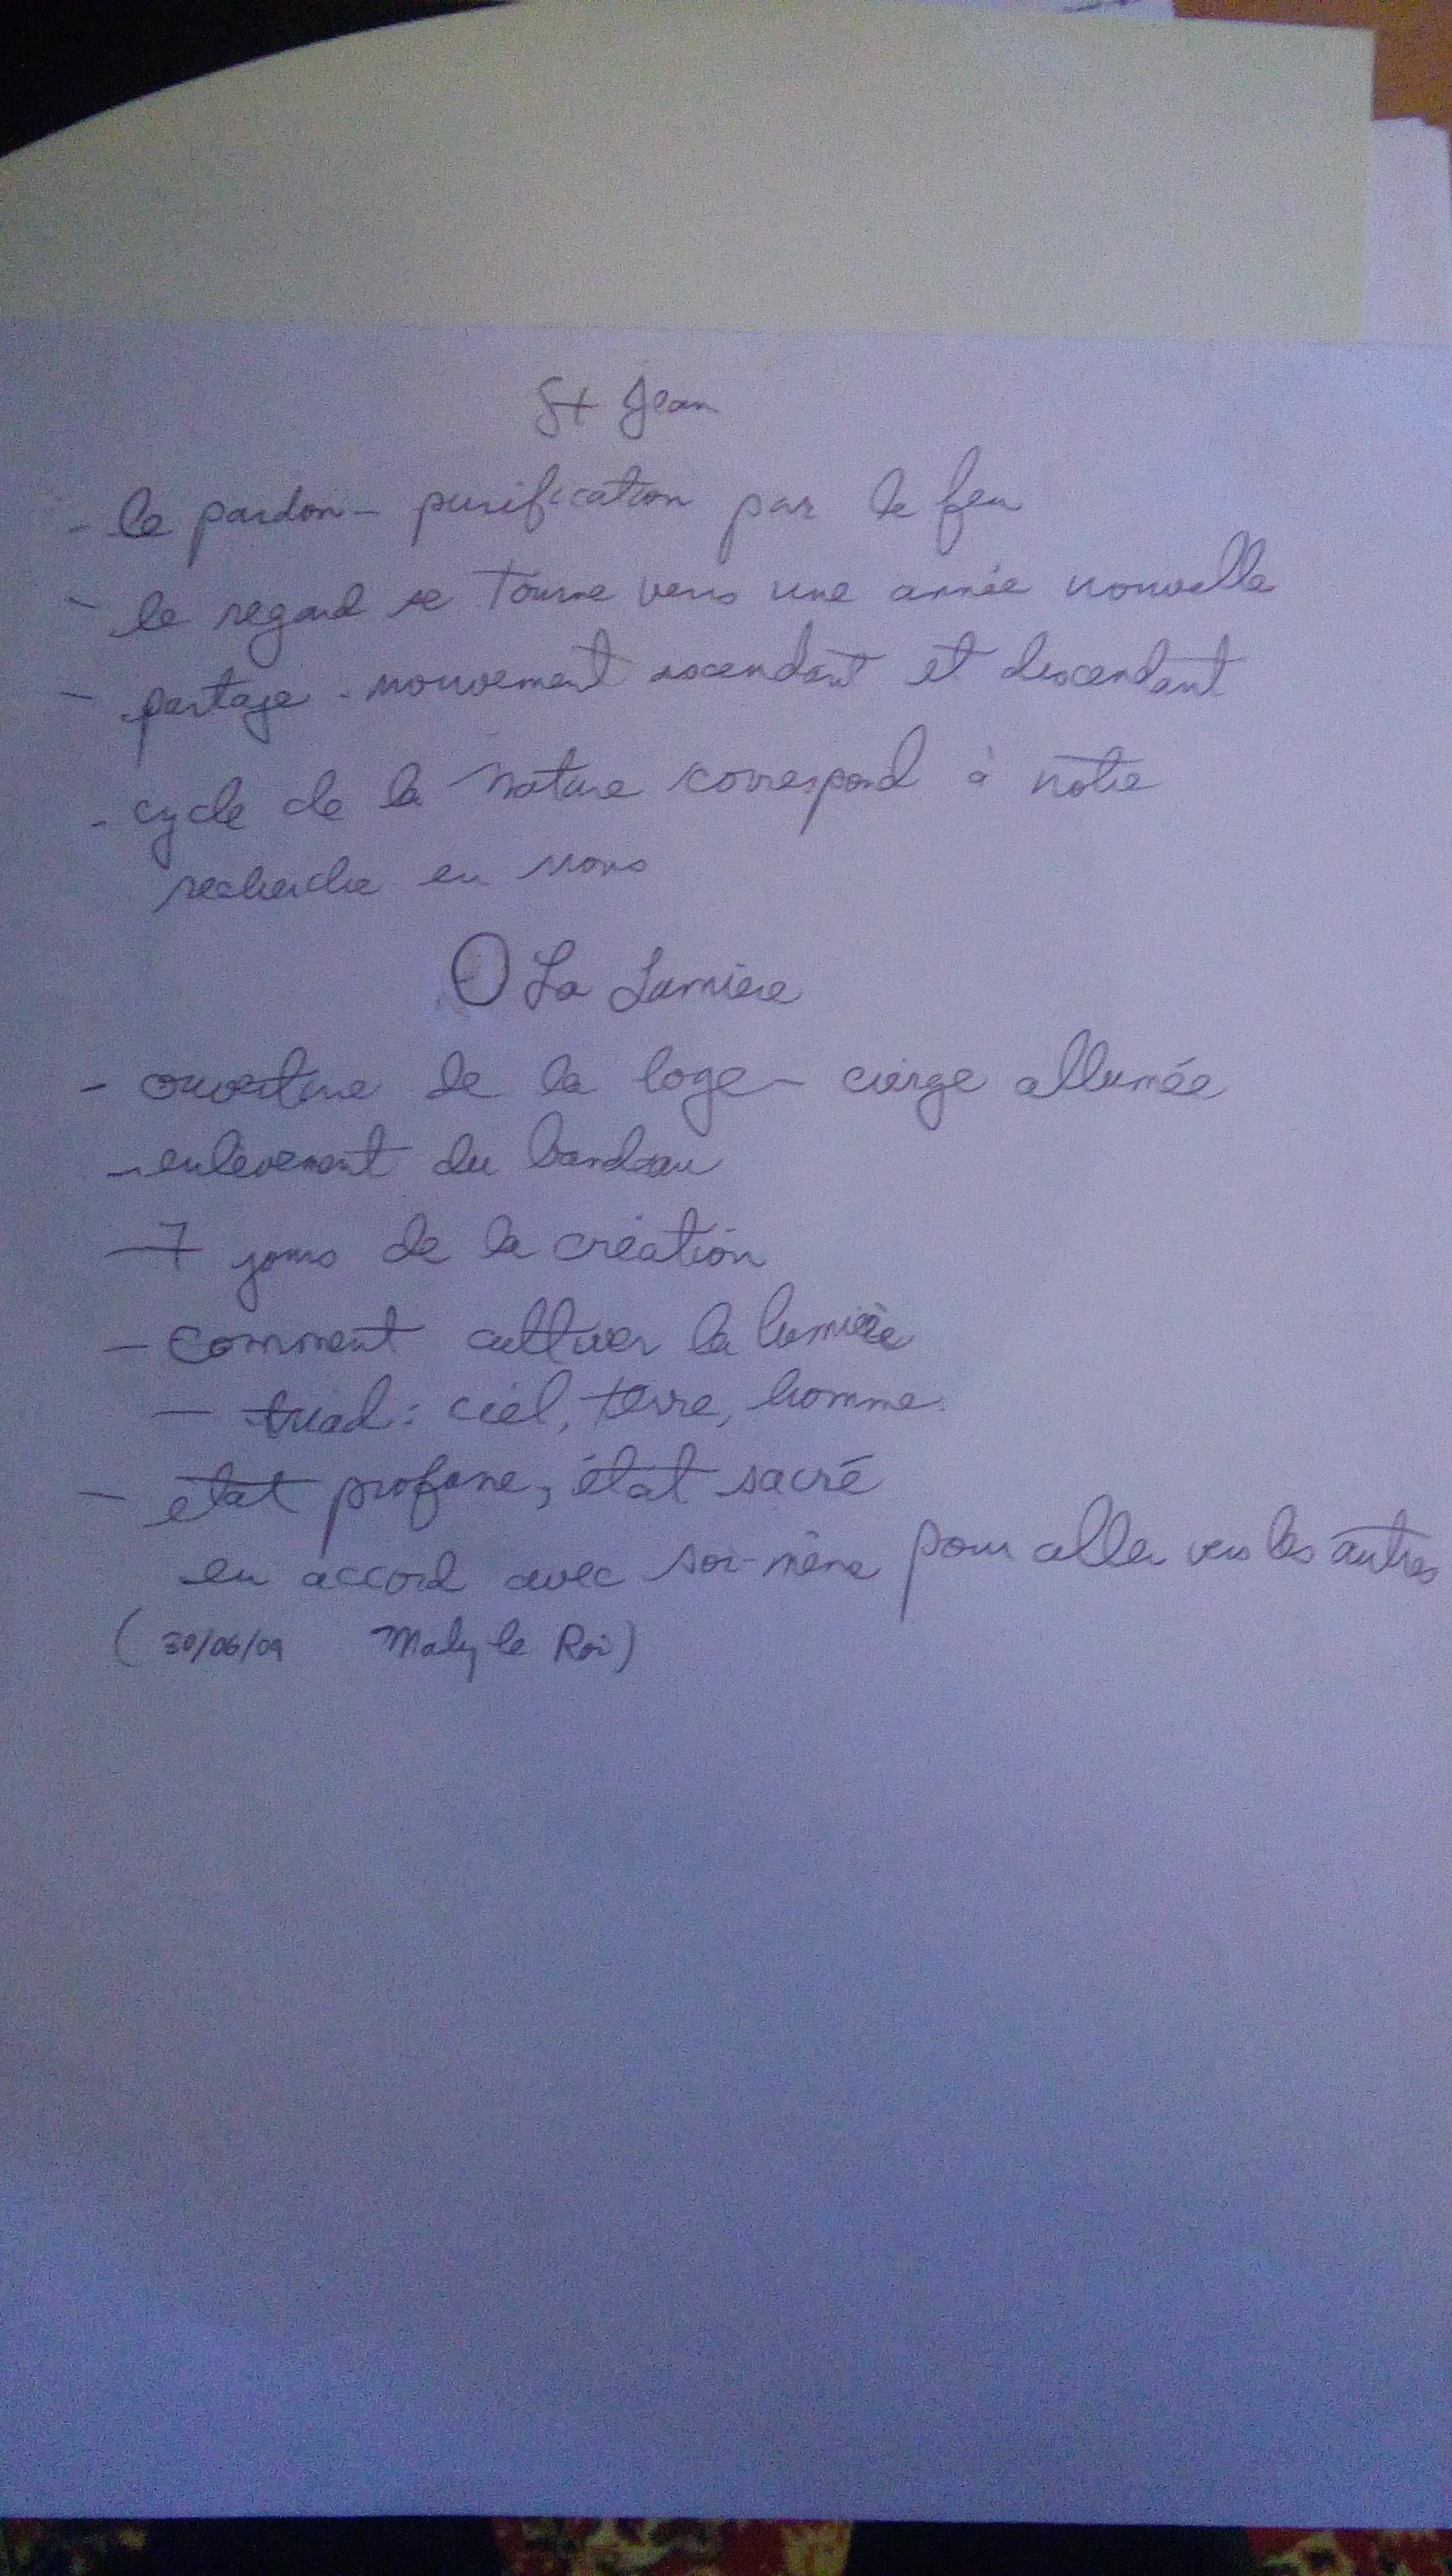 St Jean
- le pardon - purification par le feu
- le regard se tourne vers une année nouvelle
- partage - mouvement ascendant et descendant
- cycle de la nature correspond à notre
recherche en nous
La Lumière
- ouverture de la loge - cierge allumée
- enlèvement du bandeau
- 7 jours de la création
- comment cultiver la lumière
- triad : ciel, terre, homme.
- état profane, état sacré
en accord avec soi-même pour aller vers les autres
(30/06/09 le Roi)